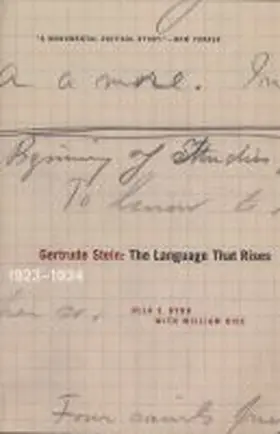 "A MONUMENTAL CRITICAL STUDY."—NEW YORKER
a a more. In
Beginning of Studies
To know to
Gertrude Stein: The Language That Rises
1923–1934
ULLA E. DYDO
WITH WILLIAM RICE
Four saints